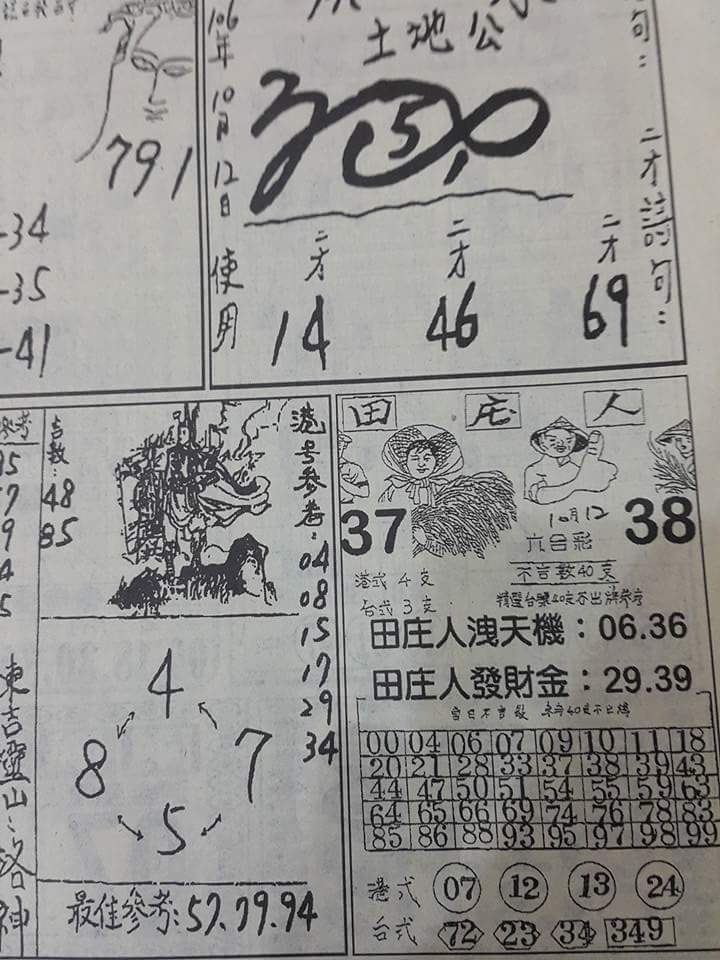 791
-34
-35
-41
土地公
106年10月12日使用
二才詩句：
二才 二才 二才
14 46 69
參考
吉數：
48
85
港号參考：
04
08
15
17
29
34
4
8 7
5
東吉靈山：洛神
最佳參考：57.79.94
田庄人
37 38
10月12
六合彩
不吉數40支
港式4支
台式3支
田庄人洩天機：06.36
田庄人發財金：29.39
00 04 06 07 09 10 11 18
20 21 28 33 37 38 39 43
44 47 50 51 54 55 59 63
64 65 66 69 74 76 78 83
85 86 88 93 95 97 98 99
港式 07 12 13 24
台式 72 23 34 349